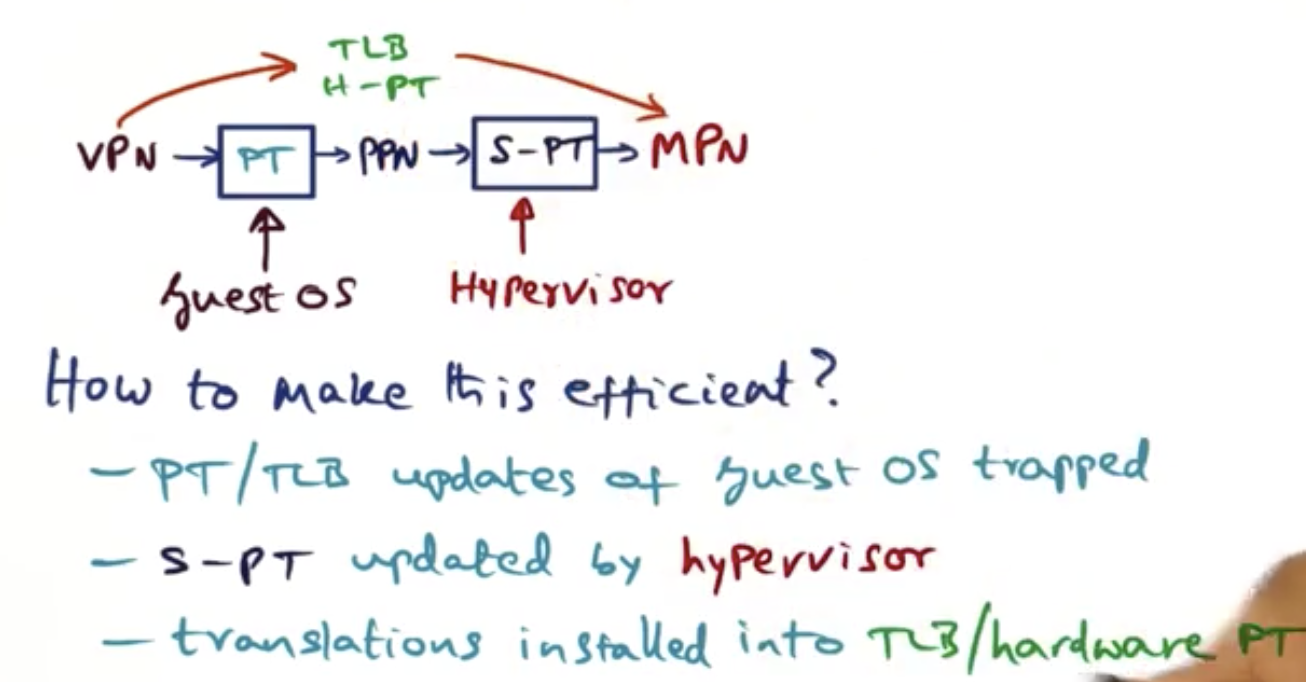 TLB
H-PT
VPN → PT → PPN → S-PT → MPN
Guest OS
Hypervisor
How to make this efficient?
- PT/TLB updates of guest OS trapped
- S-PT updated by hypervisor
- translations installed into TLB/hardware PT